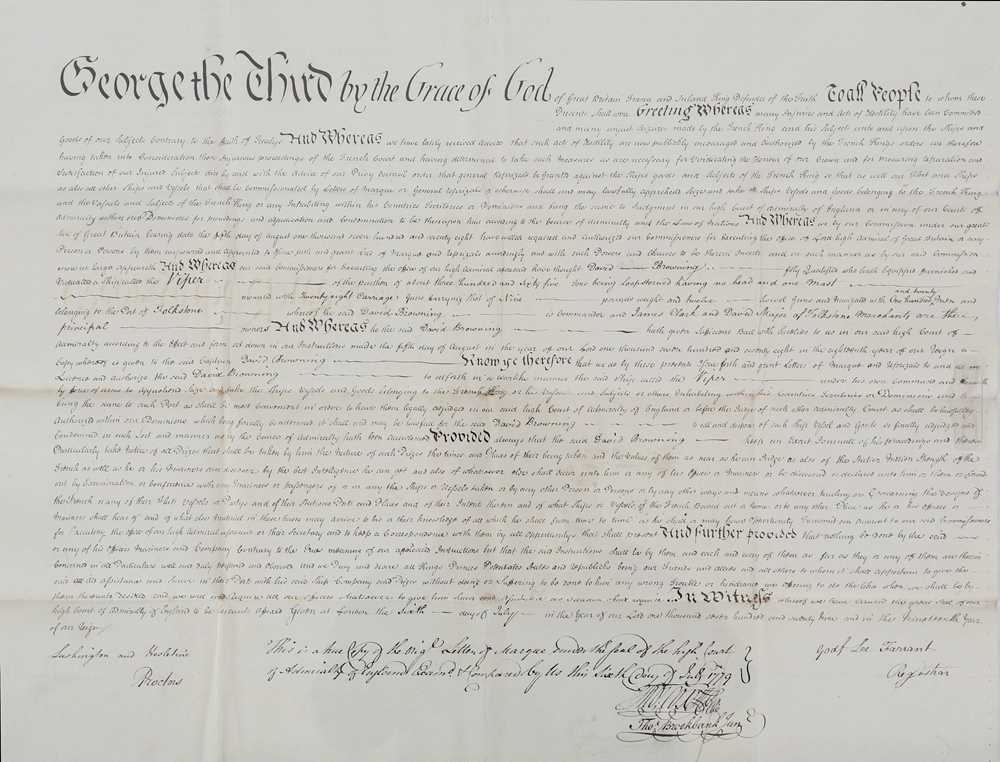 George the Third by the Grace of God of Great Britain France and Ireland King Defender of the Faith To all People to whom these
Presents shall come Greeting Whereas many Injuries and Acts of Hostility have been Committed
and many unjust seizures made by the French King and his Subjects unto and upon the Ships and
Goods of our Subjects Contrary to the Faith of Treatys And Whereas we have lately received advice that such acts of Hostility are now publickly encouraged and Authorized by the French Kings orders we therefore
having taken into Consideration these Injurious proceedings of the French Court and having determined to take such measures as are necessary for Vindicating the Honour of our Crown and for procuring reparation and
Satisfaction of our Injured Subjects did by and with the Advice of our Privy Council order that general reprizals be Granted against the Ships goods and Subjects of the French King so that as well our Fleet and Ships
as also all other Ships and Vessels that shall be Commissionated by Letters of Marque or General reprizals or otherwise shall and may lawfully apprehend seize and take the Ships Vessels and Goods belonging to the French King
and the Vassals and Subjects of the French King or any Inhabiting within his Countries Territories or Dominions and bring the same to Judgment in our high Court of admiralty of England or in any of our Courts of
admiralty within our Dominions for proceedings and adjudication and Condemnation to be thereupon had according to the Course of admiralty and the Laws of Nations And Whereas we by our Commission under our great
Seal of Great Britain bearing date the fifth day of august one thousand seven hundred and seventy eight have willed required and authorized our Commissioners for executing the office of Lord high admiral of Great Britain or any
Person or Persons by them impowered and appointed to issue forth and grant Letters of Marque and reprizals accordingly and with such Powers and Clauses to be therein inserted and in such manner as by our said Commission
more at large appeareth And Whereas our said Commissioners for executing the office of our high admiral aforesaid have thought David Browning fitly Qualified who hath Equipped furnished and
Victualled a Ship called the Viper of the Burthen of about three Hundred and Sixty five Tons being Loop sterned having no head and one Mast
and twenty
mounted with Twenty eight Carriage Guns carrying shot of Nine pounds weight and twelve Swivel Guns and navigated with One Hundred Men and
belonging to the Port of Folkstone whereof he the said David Browning is Commander and James Clark and David Major of Folkstone Merchants are the
principal owners And Whereas he the said David Browning hath given sufficient Bail with sureties to us in our said high Court of
Admiralty according to the effect and form set down in our Instructions made the fifth day of August in the year of our Lord one thousand seven hundred and seventy eight in the eighteenth year of our reign a
Copy whereof is given to the said Captain David Browning Know ye therefore that we do by these presents Issue forth and grant Letters of Marque and reprizals to and do
Licence and authorize the said David Browning to set forth in a warlike manner the said Ship called the Viper under his own Command and therewith
by force of arms to apprehend seize and take the Ships Vessels and Goods belonging to the French King or his Vassals and Subjects or others Inhabiting within his Countries Territories or Dominions and to
bring the same to such Port as shall be most convenient in order to have them legally adjudged in our said high Court of Admiralty of England or before the Judges of such other admiralty Court as shall be lawfully
Authorized within our Dominions which being finally Condemned it shall and may be lawful for the said David Browning to sell and dispose of such Ships Vessels and Goods so finally adjudged and
Condemned in such sort and manner as by the Course of Admiralty hath been accustomed Provided always that the said David Browning keep an Exact Journal of his proceedings and therein
Particularly take notice of all Prizes that shall be taken by him the nature of such Prizes the times and Places of their being taken and the Values of them as near as he can Judge as also of the Station Motion Strength of the
French as well as he or his Mariners can discover by the best Intelligence he can get and also of whatsoever else shall occur unto him or any of his officers or Mariners or be discovered or declared unto him or them or found
out by Examination or Conference with any Mariners or passengers of or in any the Ships or Vessels taken or by any other Person or Persons or by any other ways and means whatsoever touching or Concerning the designs of
the French or any of their Fleets Vessels or Partys and of their Stations Ports and Places and of their Intents therein and of what Ships or Vessels of the French Bound out or home or to any other Place as he or his officers or
Mariners shall hear of and of what else material in these cases may arrive to his or their knowledge of all which he shall from time to time as he shall or may have opportunity Transmit an account to our said Commissioners
for Executing the office of our high Admiral aforesaid or their Secretary and to keep a Correspondence with them by all opportunitys that shall present And further provided that nothing be done by the said
or any of his officers Mariners and Company Contrary to the true meaning of our aforesaid Instructions but that the said Instructions shall be by them and each and every of them as far as they or any of them are therein
Concerned in all Particulars well and duly performed and observed And we Pray and desire all Kings Princes Potentates States and republicks being our Friends and allies and all others to whom it shall appertain to give the
said all Aid assistance and succour in their Ports with his said Ship Company and Prizes without doing or suffering to be done to him any wrong trouble or hindrance we offering to do the like when we shall be by
them thereunto desired and we will and require all our officers whatsoever to give him succour and assistance as occasion shall require In Witness whereof we have caused the great Seal of our
high Court of Admiralty of England to be hereunto affixed Given at London the Sixth day of July in the Year of our Lord one thousand seven hundred and seventy nine and in the Nineteenth Year
of our Reign
Lushington and Heseltine
Proctors
This is a true Copy of the Orig.l Letter of Marque under the Seal of the high Court
of Admiralty of England Exam.d & Compared by Us this Sixth day of July 1779
Tho.s Brockbank Jun.r
Godf Lee Farrant
Registrar